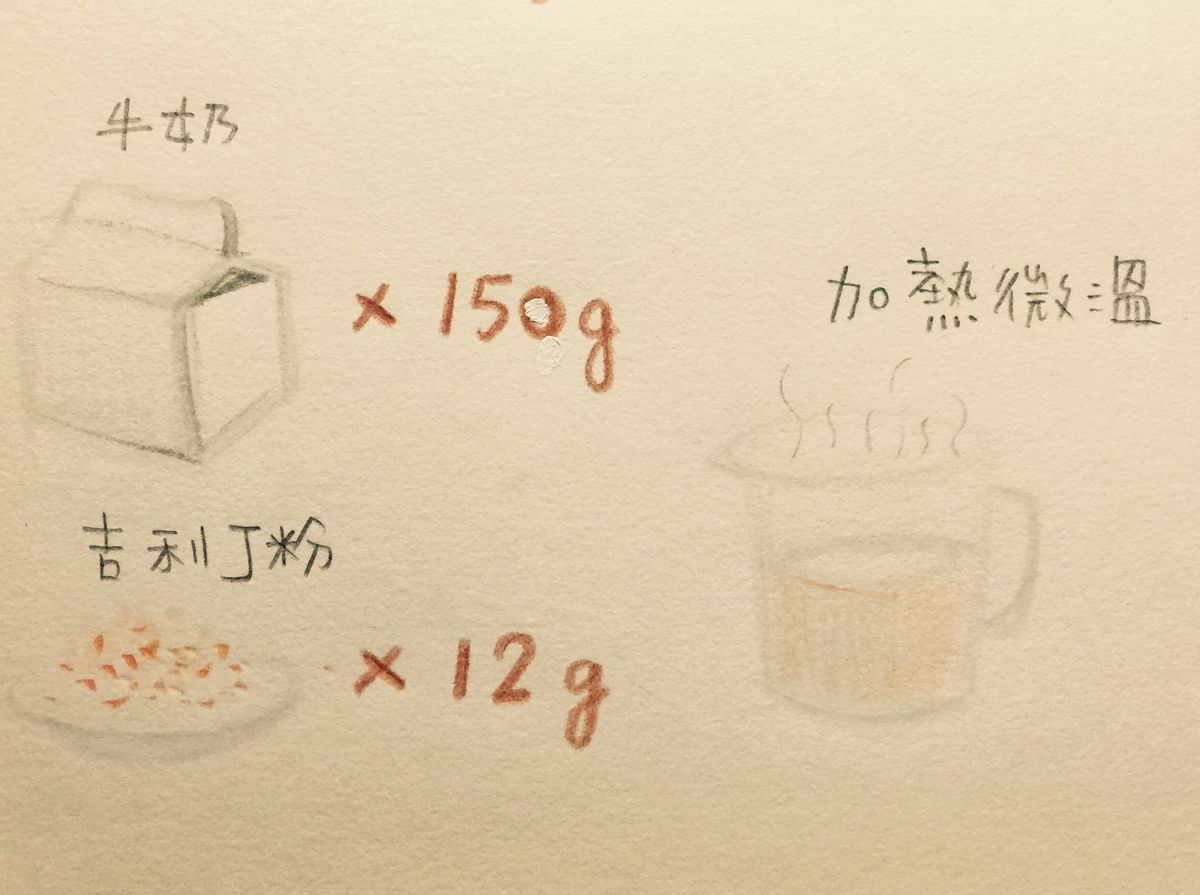 牛奶
× 150g
加熱微溫
吉利丁粉
× 12g